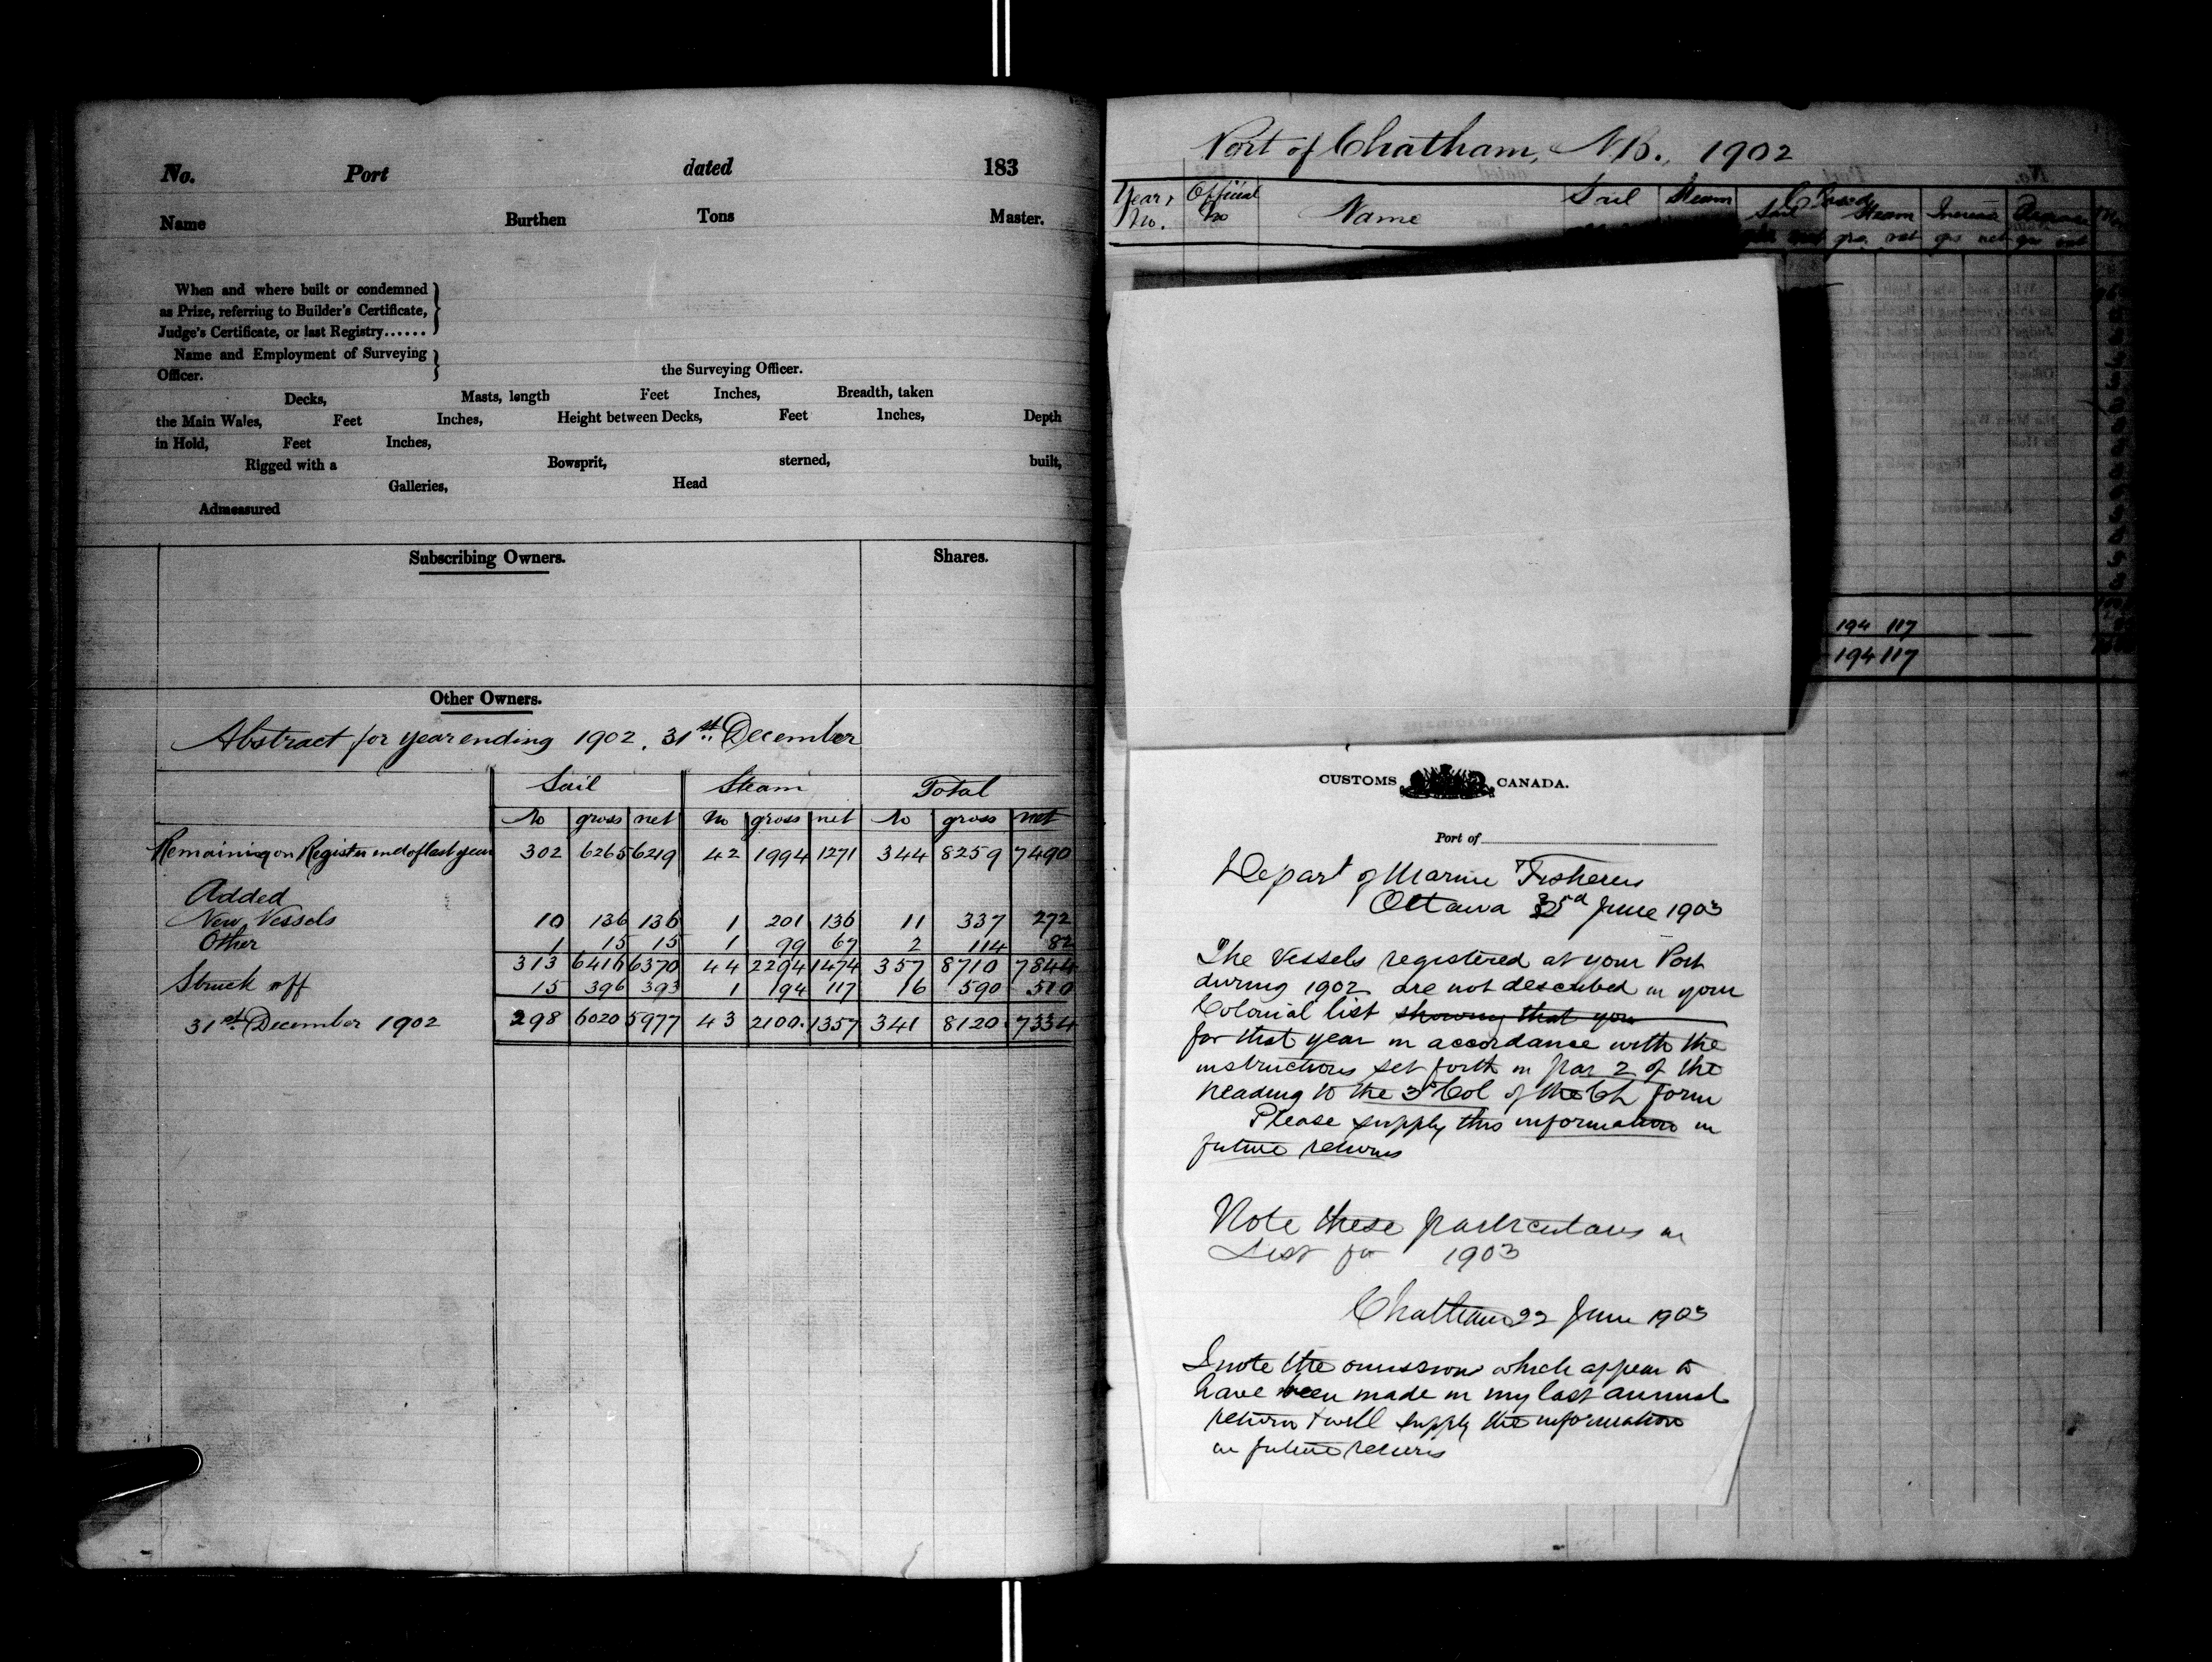 No. Port dated 183
Name Burthen Tons Master.
When and where built or condemned
as Prize, referring to Builder's Certificate,
Judge's Certificate, or last Registry......
Name and Employment of Surveying
Officer. the Surveying Officer.
Decks, Masts, length Feet Inches, Breadth, taken
the Main Wales, Feet Inches, Height between Decks, Feet Inches, Depth
in Hold, Feet Inches,
Rigged with a Bowsprit, sterned, built,
Galleries, Head
Admeasured
Subscribing Owners. Shares.
Other Owners.
Abstract for year ending 1902, 31st December
Sail Steam Total
No gross net No gross net No gross net
Remaining on Register end of last year 302 6265 6219 42 1994 1271 344 8259 7490
Added
New Vessels 10 136 136 1 201 136 11 337 272
Other 1 15 15 1 99 67 2 114 82
313 6416 6370 44 2294 1474 357 8710 7844
Struck off 15 396 393 1 194 117 16 590 510
31st December 1902 298 6020 5977 43 2100 1357 341 8120 7334
Port of Chatham, N.B., 1902
Year, No. Official No Name Sail Steam Closed Sail Steam Increase
gro. net grs net grs net
194 117
194 117
CUSTOMS CANADA.
Port of
Depart of Marine Fisheries
Ottawa June 1903
The Vessels registered at your Port
during 1902 are not described in your
Colonial list showing that you
for that year in accordance with the
instructions set forth in par 2 of the
heading to the 3rd Col of the Ch form
Please supply this information in
future returns
Note these particulars in
List for 1903
Chatham 22 June 1903
I note the omissions which appear to
have been made in my last annual
return & will supply the information
in future returns